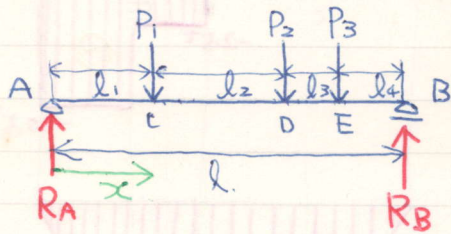 P₁ P₂ P₃
A l₁ l₂ l₃ l₄ B
C D E
l.
x
R_A R_B